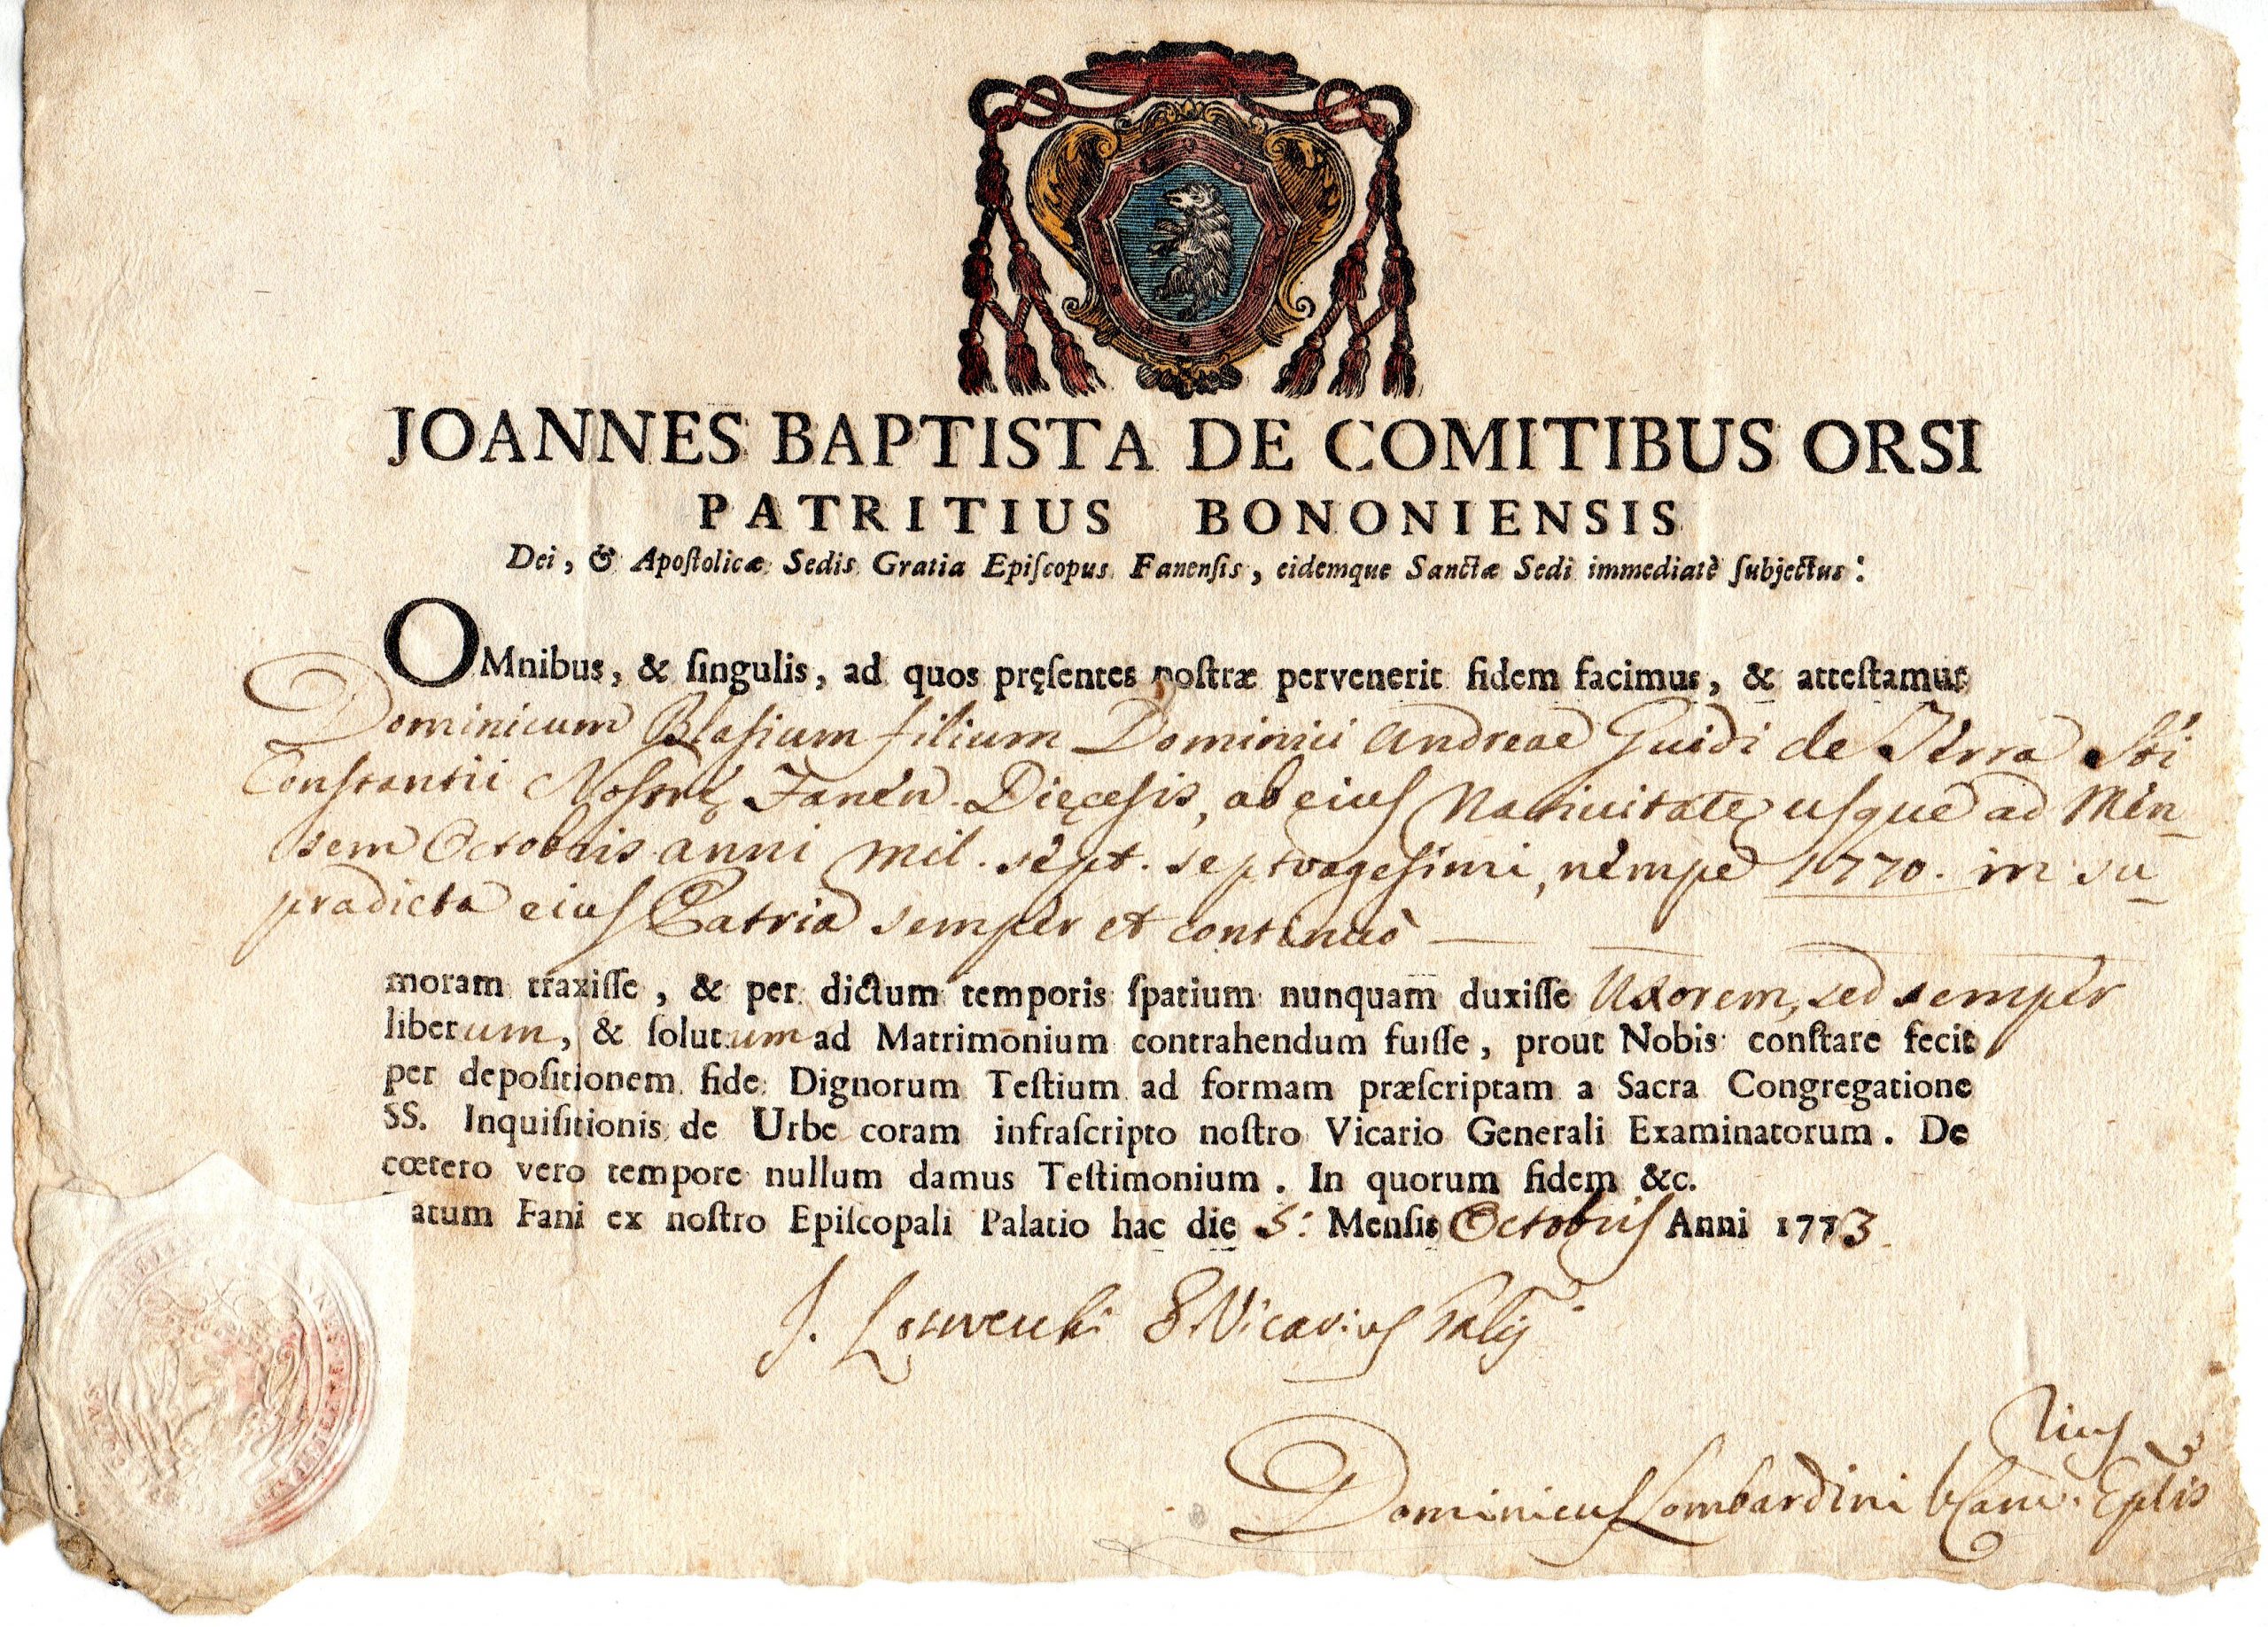 JOANNES BAPTISTA DE COMITIBUS ORSI
PATRITIUS BONONIENSIS
Dei, & Apoſtolicæ Sedis Gratia Epiſcopus Fanenſis, eidemque Sanctæ Sedi immediatè ſubjectus:
OMnibus, & ſingulis, ad quos pręſentes noſtræ pervenerit fidem facimus, & atteſtamur
Dominicum Blaſium filium Dominici Andreae Guidi de Terra Sti
Constantii Nostrę Fanen. Dięcesis, ab eius Nativitate usque ad Men-
sem Octobris anni mil. sept. septuagesimi, nempe 1770. in su-
pradicta eius Patria semper et continuò
moram traxiſſe, & per dictum temporis ſpatium nunquam duxiſſe Uxorem, sed semper
liberum, & ſolutum ad Matrimonium contrahendum fuiſſe, prout Nobis conſtare fecit
per depoſitionem fide Dignorum Teſtium ad formam præſcriptam a Sacra Congregatione
SS. Inquiſitionis de Urbe coram infraſcripto noſtro Vicario Generali Examinatorum. De
cœtero vero tempore nullum damus Teſtimonium. In quorum fidem &c.
atum Fani ex noſtro Epiſcopali Palatio hac die 5: Menſis Octobris Anni 1773.
Vicarius
Dominicus Lombardini